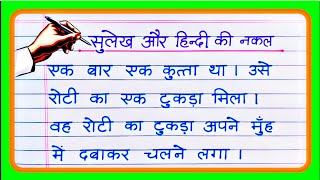 सुलेख और हिन्दी की नकल
एक बार एक कुत्ता था । उसे
रोटी का एक टुकड़ा मिला ।
वह रोटी का टुकड़ा अपने मुँह
में दबाकर चलने लगा ।